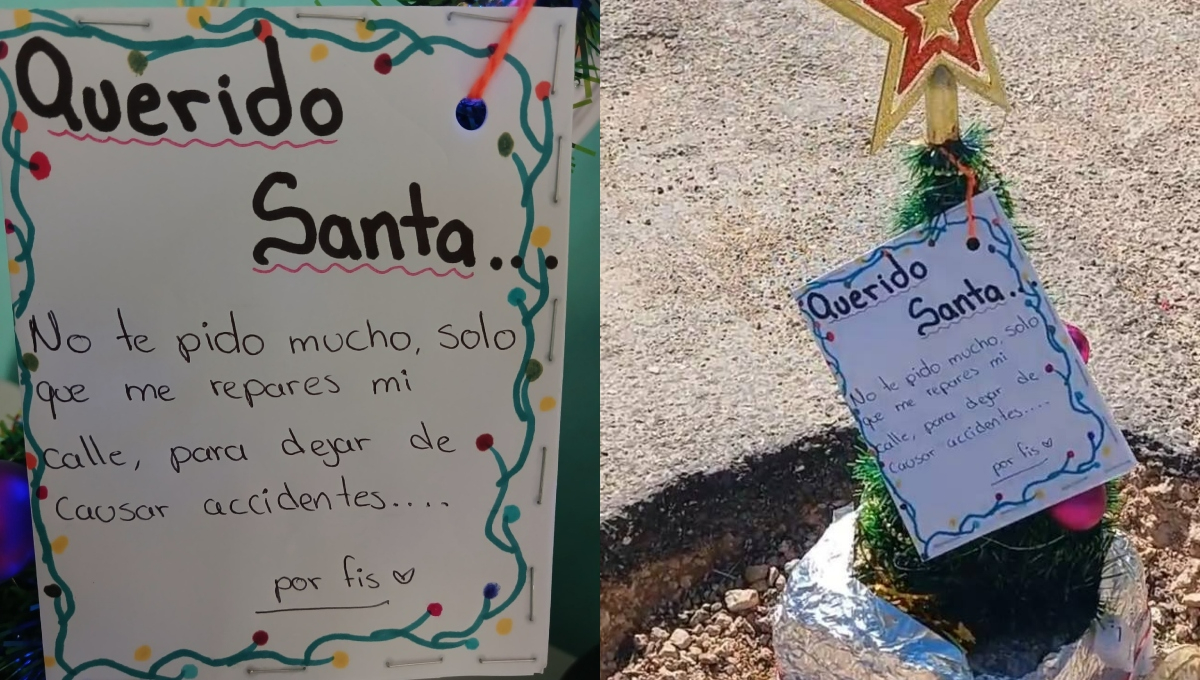 Querido
Santa...
No te pido mucho, solo
que me repares mi
calle, para dejar de
causar accidentes....
por fis
Querido
Santa...
No te pido mucho, solo
que me repares mi
calle, para dejar de
causar accidentes....
por fis